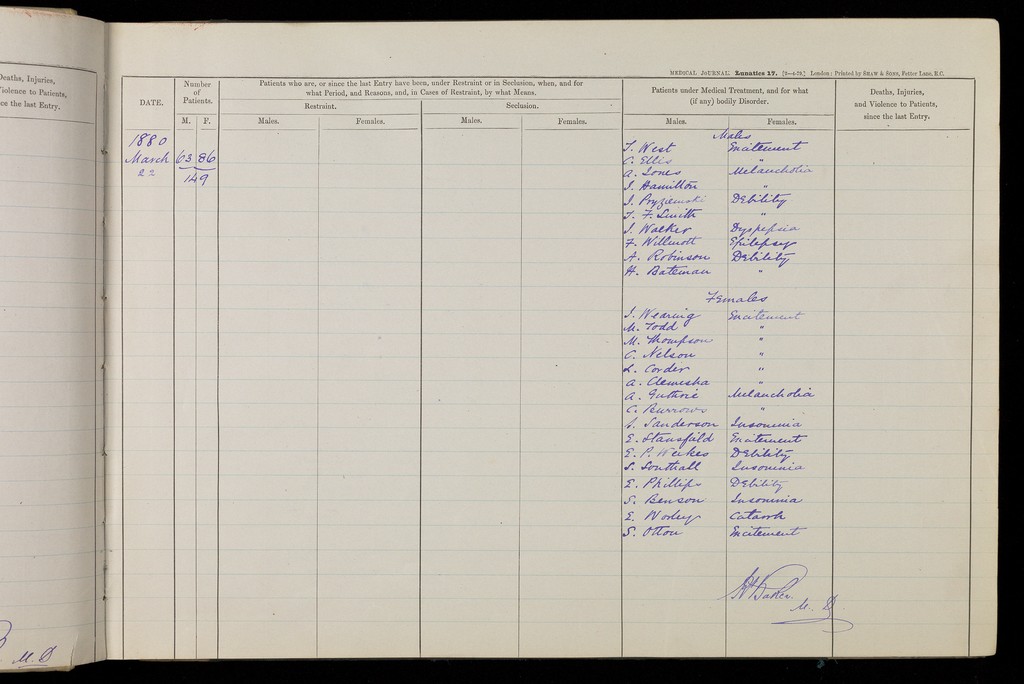 Deaths, Injuries,
Violence to Patients,
ce the last Entry.
M.D
MEDICAL JOURNAL. Lunatics 17. [9—4-79.] London: Printed by SHAW & SONS, Fetter Lane, E.C.
DATE.
Number of Patients.
M. F.
Patients who are, or since the last Entry have been, under Restraint or in Seclusion, when, and for
what Period, and Reasons, and, in Cases of Restraint, by what Means.
Restraint. Seclusion.
Males. Females. Males. Females.
Patients under Medical Treatment, and for what
(if any) bodily Disorder.
Males. Females.
Deaths, Injuries,
and Violence to Patients,
since the last Entry.
1880
March 63 86
22 149
Males
T. West Excitement
C. Ellis "
A. Jones Melancholia
J. Hamilton "
J. Pryziemski Debility
T. F. Smith "
J. Walker Dyspepsia
F. Willmott Epilepsy
A. Robinson Debility
H. Bateman "
Females
J. Wearing Excitement
M. Todd "
M. Thompson "
C. Nelson "
L. Corder "
A. Clemesha "
A. Guthrie Melancholia
C. Burrows "
Sanderson Insomnia
E. Stansfield Excitement
E. P. Weekes Debility
S. Southall Insomnia
E. Phillips Debility
S. Benson Insomnia
E. Worley Catarrh
S. Otton Excitement
Baker. M.D.